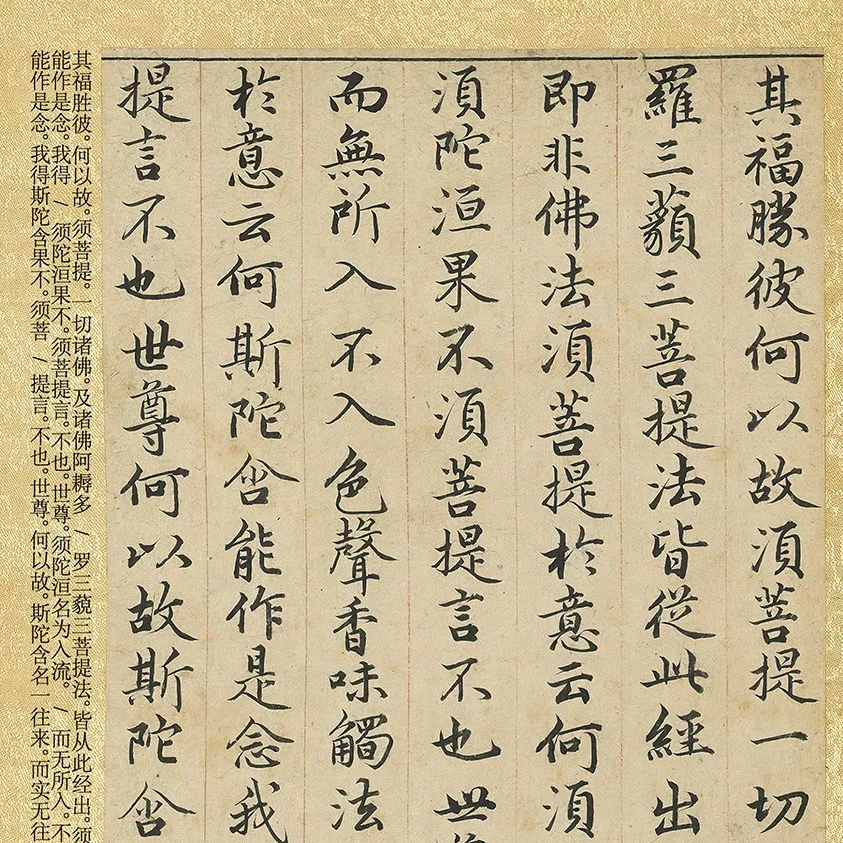 其福勝彼何以故湏菩提一切
羅三藐三菩提法皆從此經出
即非佛法湏菩提於意云何湏
湏陀洹果不湏菩提言不也世
而無所入不入色聲香味觸法
於意云何斯陀含能作是念我
提言不也世尊何以故斯陀含
其福胜彼。何以故。须菩提。一切诸佛。及诸佛阿耨多 / 罗三藐三菩提法。皆从此经出。须
能作是念。我得 / 须陀洹果不。须菩提言。不也。世尊。须陀洹名为入流。 / 而无所入。不
能作是念。我得斯陀含果不。须菩 / 提言。不也。世尊。何以故。斯陀含名一往来。而实无往